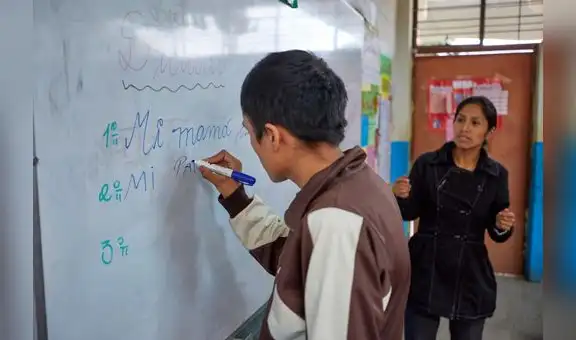 1° Mi mamá
2° Mi Pa
3°